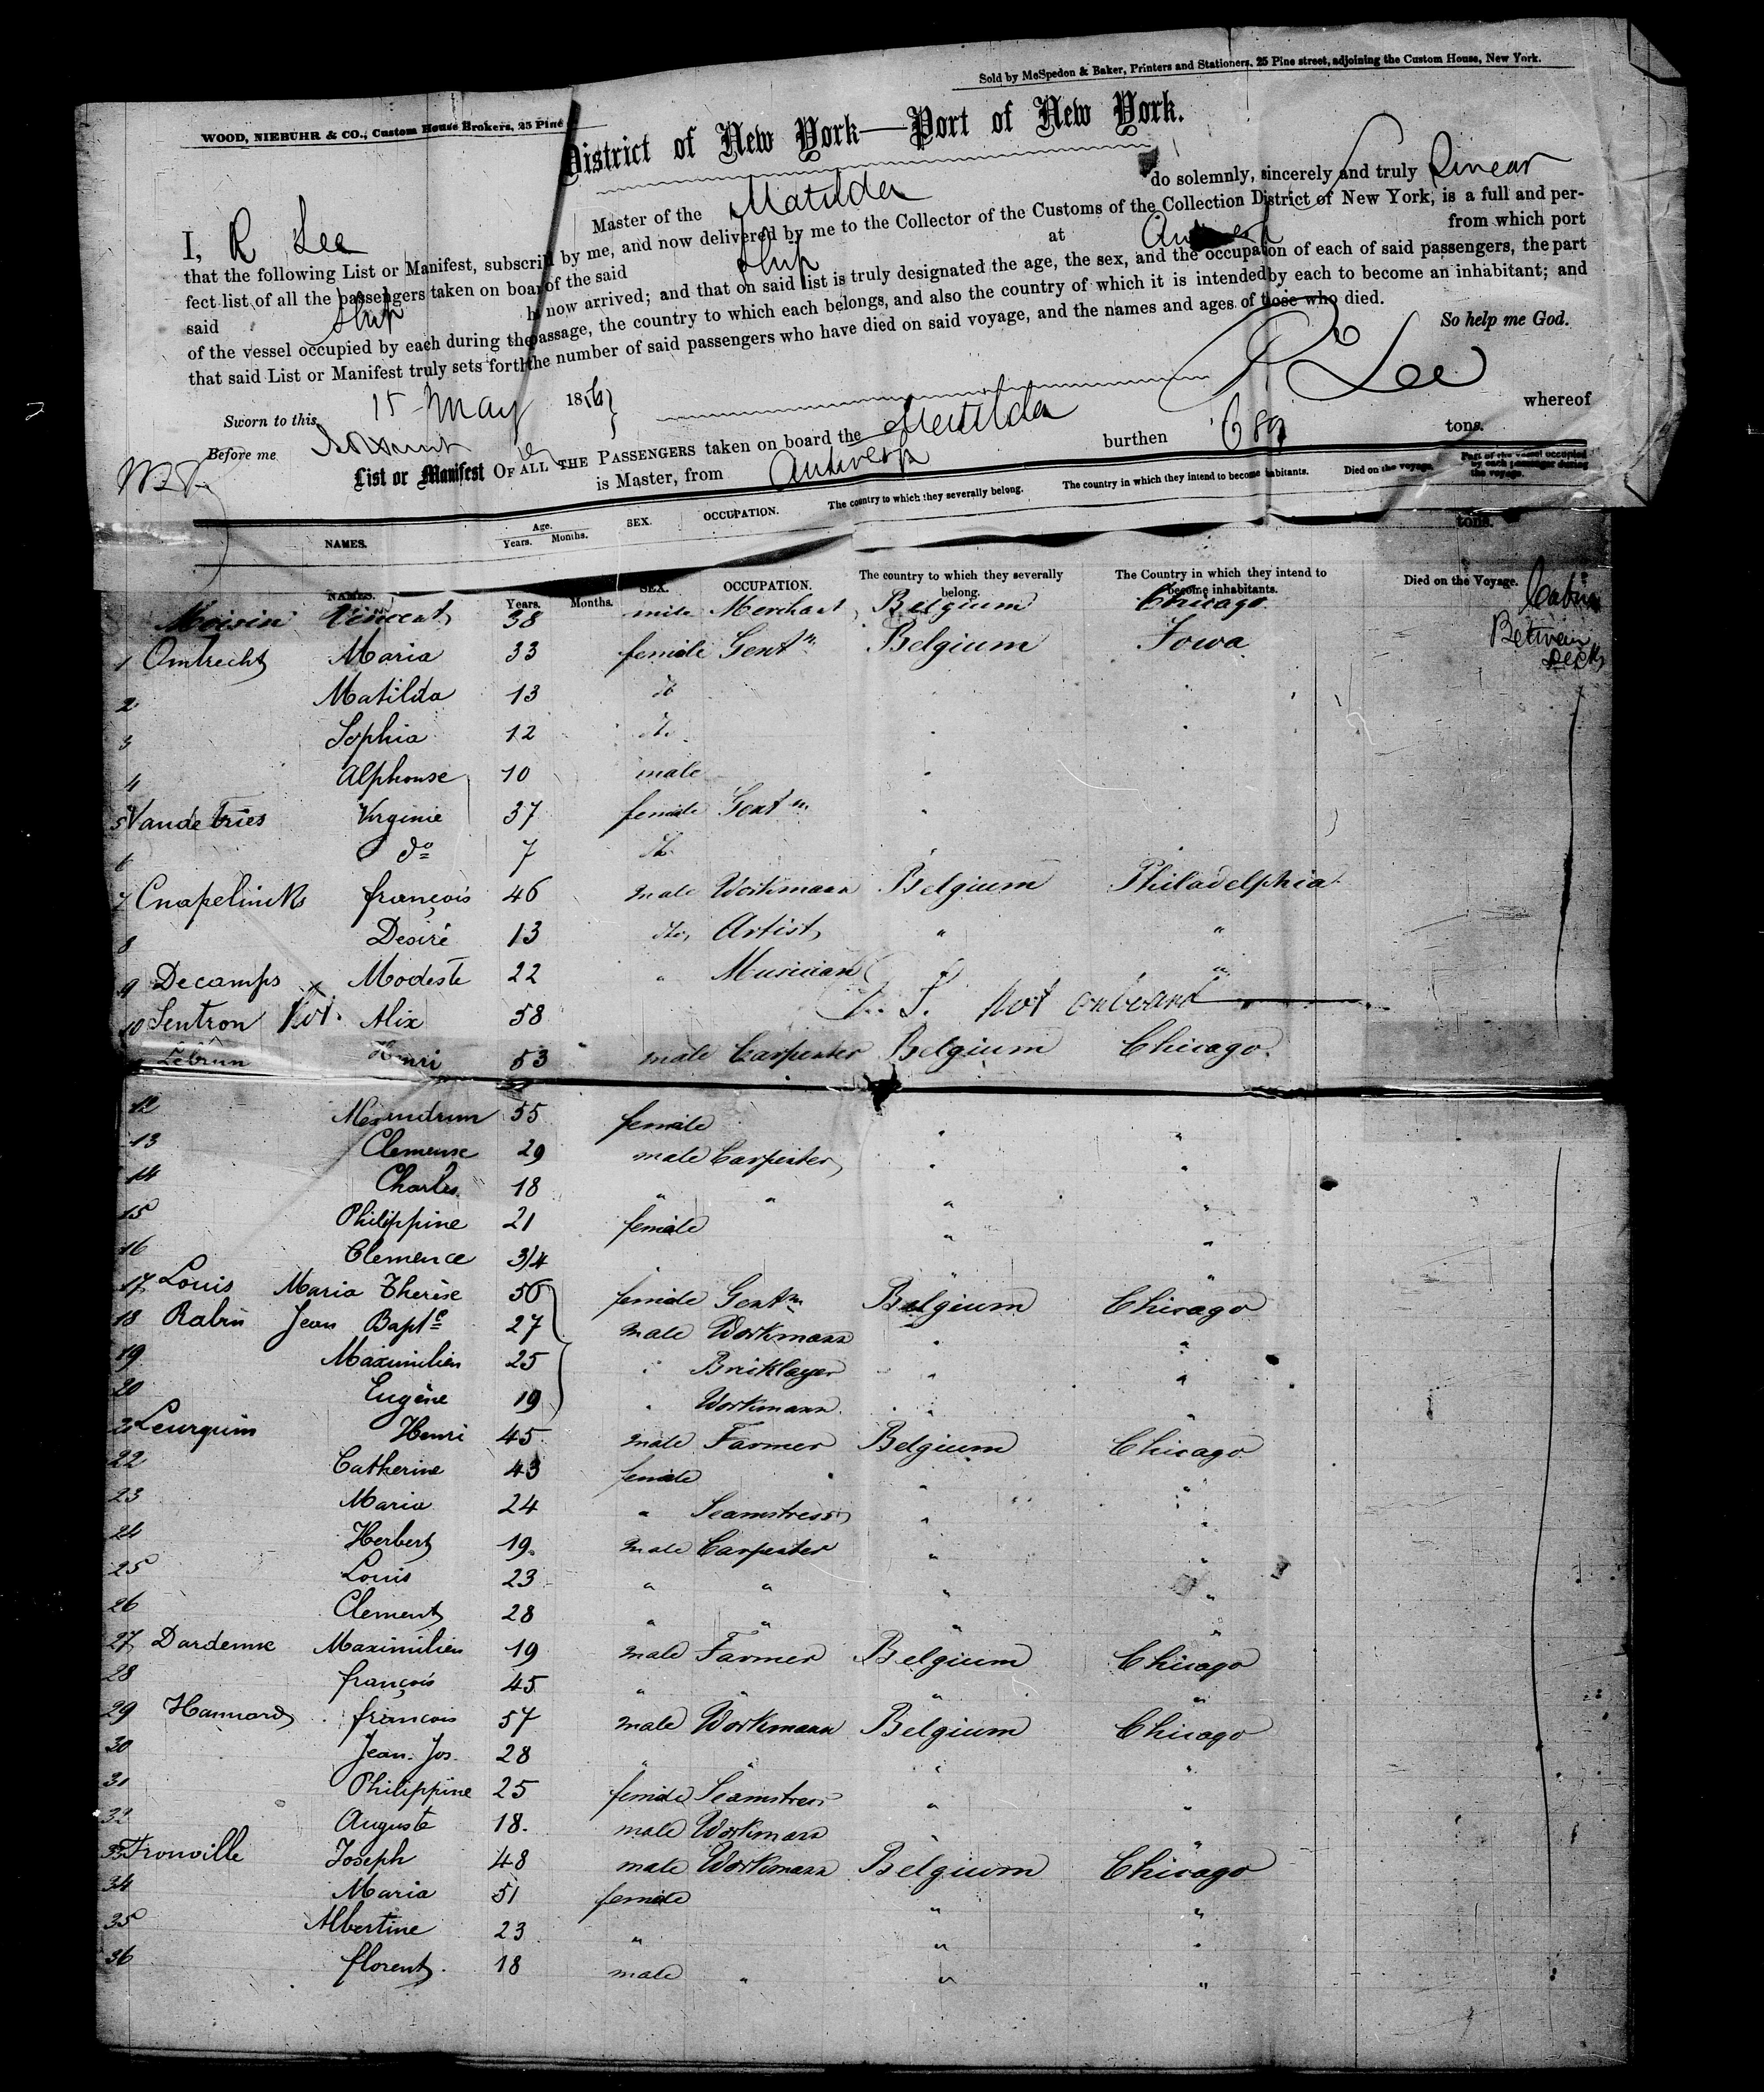 Sold by McSpedon & Baker, Printers and Stationers, 25 Pine street, adjoining the Custom House, New York.
WOOD, NIEBUHR & CO., Custom House Brokers, 25 Pine
District of New York—Port of New York.
I, R Lee Master of the Matilda do solemnly, sincerely and truly swear
that the following List or Manifest, subscri by me, and now delivered by me to the Collector of the Customs of the Collection District of New York, is a full and per-
fect list of all the passengers taken on boar of the said Ship at Antwerp from which port
said Ship now arrived; and that on said list is truly designated the age, the sex, and the occupation of each of said passengers, the part
of the vessel occupied by each during the passage, the country to which each belongs, and also the country of which it is intended by each to become an inhabitant; and
that said List or Manifest truly sets forth the number of said passengers who have died on said voyage, and the names and ages of those who died.
So help me God.
Sworn to this 15 May 1856 R Lee
Before me
List or Manifest OF ALL THE PASSENGERS taken on board the Matilda whereof
is Master, from Antwerp burthen 689 tons.
NAMES. Age. Years. Months. SEX. OCCUPATION. The country to which they severally belong. The country in which they intend to become inhabitants. Died on the voyage. Part of the vessel occupied by each passenger during the voyage.
tons.
NAMES. Years. Months. SEX. OCCUPATION. The country to which they severally belong. The Country in which they intend to become inhabitants. Died on the Voyage.
Moisin Vincent 38 male Merchant Belgium Chicago Cabin
1 Ombrecht Maria 33 female Gentn Belgium Iowa Between Decks
2 Matilda 13 do
3 Sophia 12 do
4 Alphonse 10 male
5 Vande Vries Virginie 37 female Gentn "
6 do 7 do "
7 Cnapelincks françois 46 male Workmann Belgium Philadelphia
8 Desiré 13 do, Artist " "
9 Decamps x Modeste 22 " Musician "
10 Sentron Not. Alix 58 Not on board
Lebrun Henri 53 male Carpenter Belgium Chicago
12 55 female " "
13 Clemense 29 male Carpenter " "
14 Charles 18 " " " "
15 Philippine 21 female " "
16 Clemence 3/4 " "
17 Louis Maria Therèse 56 female Gentn Belgium Chicago
18 Rabin Jean Bapte 27 male Workmann " "
19 Maximilien 25 " Bricklayer " "
20 Eugène 19 " Workmann " "
21 Leurquin Henri 45 male Farmer Belgium Chicago
22 Catherine 43 female " "
23 Maria 24 " Seamstress " "
24 Herbert 19. male Carpenter " "
25 Louis 23 " " " "
26 Clement 28 " " " "
27 Dardenne Maximilien 19 male Farmer Belgium Chicago
28 françois 45 " " " "
29 Hannard françois 57 male Workmann Belgium Chicago
30 Jean. Jos. 28 " " " "
31 Philippine 25 female Seamstress " "
32 Auguste 18. male Workmann " "
33 Fronville Joseph 48 male Workmann Belgium Chicago
34 Maria 51 female " "
35 Albertine 23 " " "
36 florent 18 male " " "